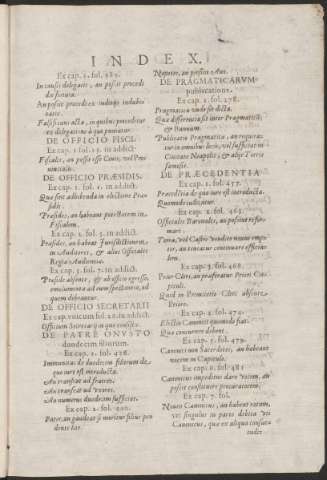 INDEX.
Ex cap. 1. fol. 385.
In causis delegatis, an possit procedi de factura.
An possit procedi ex indicijs indubitatis.
Falsificans acta, in quibus proceditur ex delegatione à quo puniatur.
DE OFFICIO FISCI.
Ex cap. 1. fol. 15. in addict.
Fiscales, an possit esse Ciuis, vel Prouincialis.
DE OFFICIO PRÆSIDIS.
Ex cap. 1. fol. 1. in addict.
Quæ sint adhibenda in electione Præsidis.
Præsides, an habeant potestatem in Fiscalem.
Ex cap. 2. fol. 5. in addict.
Præsides, an habeat Iurisdictionem, in Auditores, & alios Officiales Regiæ Audientiæ.
Ex cap. 3. fol. 7. in addict.
Præside absente, & ab officio egresso, omnium vota ad eum spectantia, ad quem debeantur.
DE OFFICIO SECRETARII
Ex cap. vnicum fol. 20. in addict.
Officium Secretarij in quo consistit.
DE PATRE ONVSTO
duodecim filiorum.
Ex cap. 1. fol. 428.
Immunitas de duodecim filiorum de quo iure est introducta.
An transeat ad fratres.
An transeat ad vxores.
An numerus duodecim sufficiat.
Ex cap. 2. fol. 202.
Pater, an gaudeat si moritur filius pendente lite.
Nepotes, an possint
DE PRAGMATICARVM
publicatione.
Ex cap. 1. fol. 278.
Pragmatica vnde sit dicta.
Quæ differentia sit inter Pragmaticã, & Bannum.
Publicatio Pragmaticæ, an requiratur in omnibus locis, vel sufficiat in Ciuitate Neapolis, & alijs Terris famosis.
DE PRÆCEDENTIA
Ex cap. 1. fol. 457.
Præcedentia de quo iure est introducta.
Quomodo iudicetur.
Ex cap. 2. fol. 463.
Officiales Baronales, an possint reformari.
Terra, vel Castro vendito nouus emptor, an teneatur continuare officialem.
Ex cap. 3. fol. 468.
Prior Cleri, an præferatur Priori Capituli.
Quid in Primicerio Cleri absente Priore.
Ex cap. 4. fol. 474.
Electio Canonici quomodo fiat.
Quæ concurrere debent.
Ex cap. 5. fol. 479.
Canonici non Sacerdotes, an habeant vocem in Capitulo.
Ex cap. 6. fol. 481
Canonicus impeditus dare votum, an possit constituere procuratorem.
Ex cap. 7. fol.
Nouus Canonicus, an habeat votum, vti singulus in pares debita vti Canonicus, quæ ex aliquo constitu